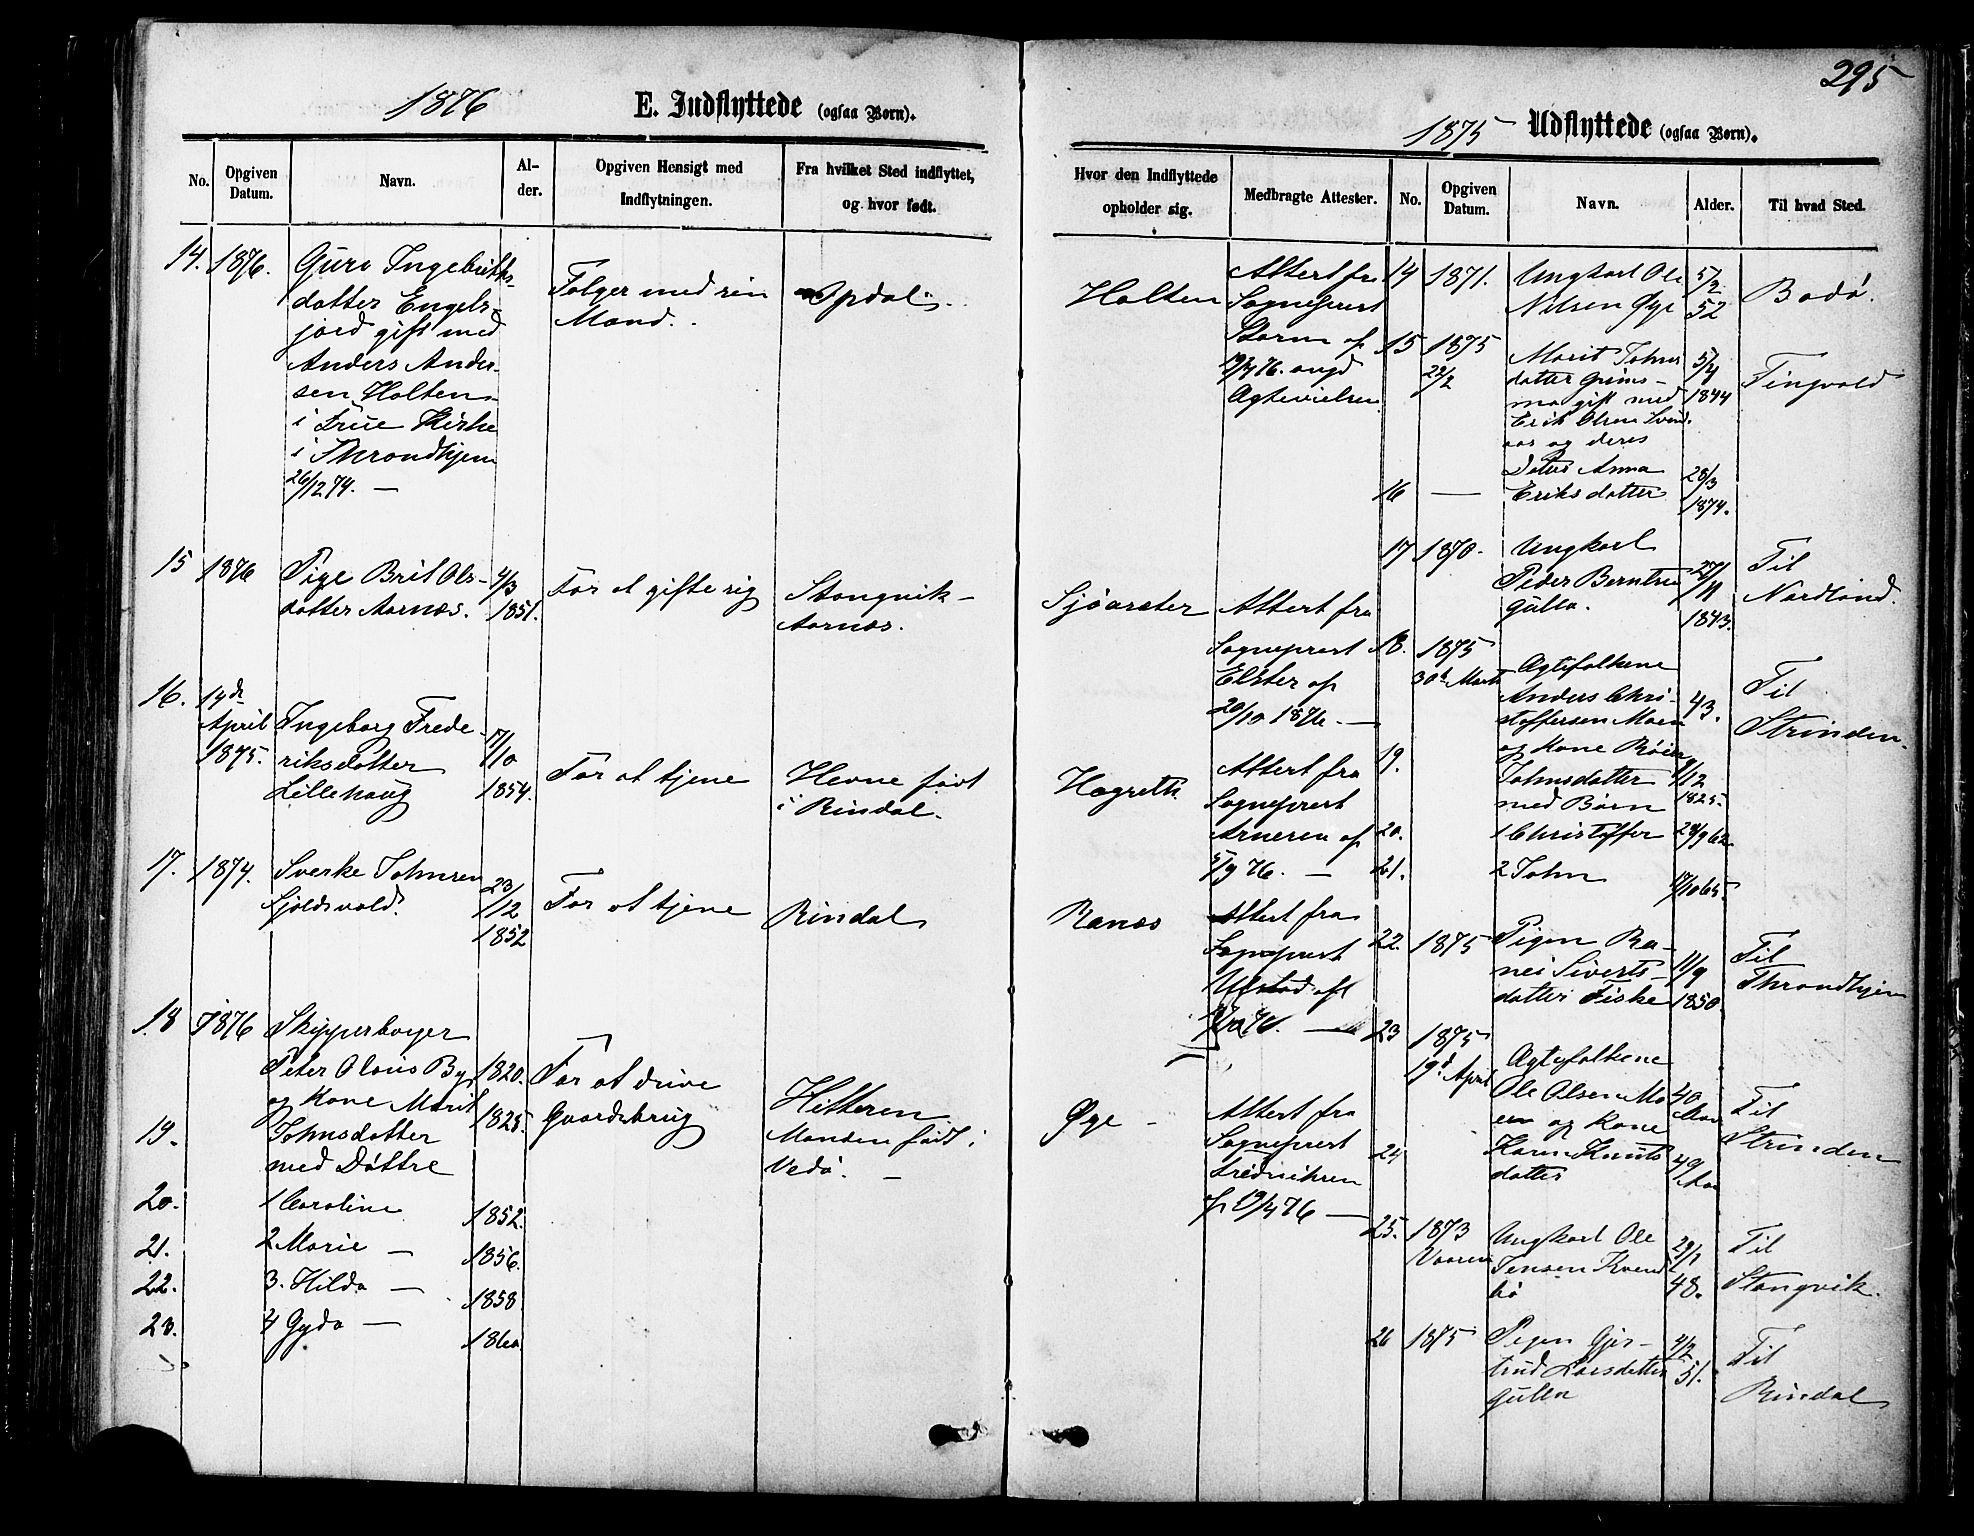 295
1876 E. Indflyttede (ogsaa Børn).
No. Opgiven Datum. Navn. Alder. Opgiven Hensigt med Indflytningen. Fra hvilket Sted indflyttet, og hvor født.
Hvor den Indflyttede opholder sig. Medbragte Attester.
14. 1876. Guro Ingebrikts-
datter Engels-
jord gift med
Anders Ander-
sen Holten
i Frue Kirke
i Throndhjem
26/12 74. —
Følger med sin
Mand.
Opdal.
Holten
Attest fra
Sogneprest
Storm af
76. angd
Ægtevielsen
15 1876 Pige Brit Ols-
datter Aarnæs.
4/3
1851.
For at gifte sig
Stangvik-
Aarnæs.
Sjøaseter
Attest fra
Sogneprest
Elster af
20/10 1876. —
16. 14de
April
1875.
Ingeborg Frede-
riksdatter
Lillehaug
17/10
1854.
For at tjene
Hevne født
i Rindal.
Hagreth
Attest fra
Sogneprest
Arnesen af
5/9 76. —
17. 1874. Sverke Johnsen
Fjeldsvold.
23/12
1852
For at tjene
Rindal
Ranæs
Attest fra
Sogneprest
Ulstad af
—
18 1876 Skipperborger
Peter Olaus By
1820.
og Kone Marit
1825.
19. Johnsdatter
med Døttre
20. 1 Caroline 1852.
21. 2 Marie — 1856.
22. 3. Hilda — 1858.
23. 4 Gyda — 1860
For at drive
Gaardsbrug
Hitteren
Manden født i
Vedø. —
Øye -
Attest fra
Sogneprest
Fredriksen
af 19/4 76 —
1875 Udflyttede (ogsaa Børn).
No. Opgiven Datum. Navn. Alder. Til hvad Sted.
14 1871. Ungkarl Ole
Nilsen Øye
5/2
52
Bodø.
15 1875
22/2
Marit Johns
datter Grims-
mo gift med
Erik Olsen Svind-
aas og deres
5/4
1844
Tingvold
Datter Anna
16 — Eriksdatter
28/3
1874.
17 1870. Ungkarl
Peder Berntsen
Gulla.
27/11
1843.
Til
Nordland.
18. 1875
30d Marts
Ægtefolkene
Anders Chri-
stoffersen Moen
43.
og Kone
19. Johnsdatter
med Børn
1825.
20. 1 Christoffer 28/9 62
21. 2 John 17/10 65.
Til
Strinden.
22. 1875 Pigen Ra-
nei Siverts-
datter Fiske
11/9
1850.
Til
Throndhjem
23 1875
19d April
Ægtefolkene
Ole Olsen Mo-
en og Kone
40
Aar
24 Karen Knuts
datter
49
Aar
Til
Strinden
25. 1873
Vaaren
Ungkarl Ole
Jensen Kvend
bø
29/1
48.
Til
Stangvik.
26 1875 Pigen Gjer-
trud Larsdatter
Gulla
4/2
51.
Til
Rindal